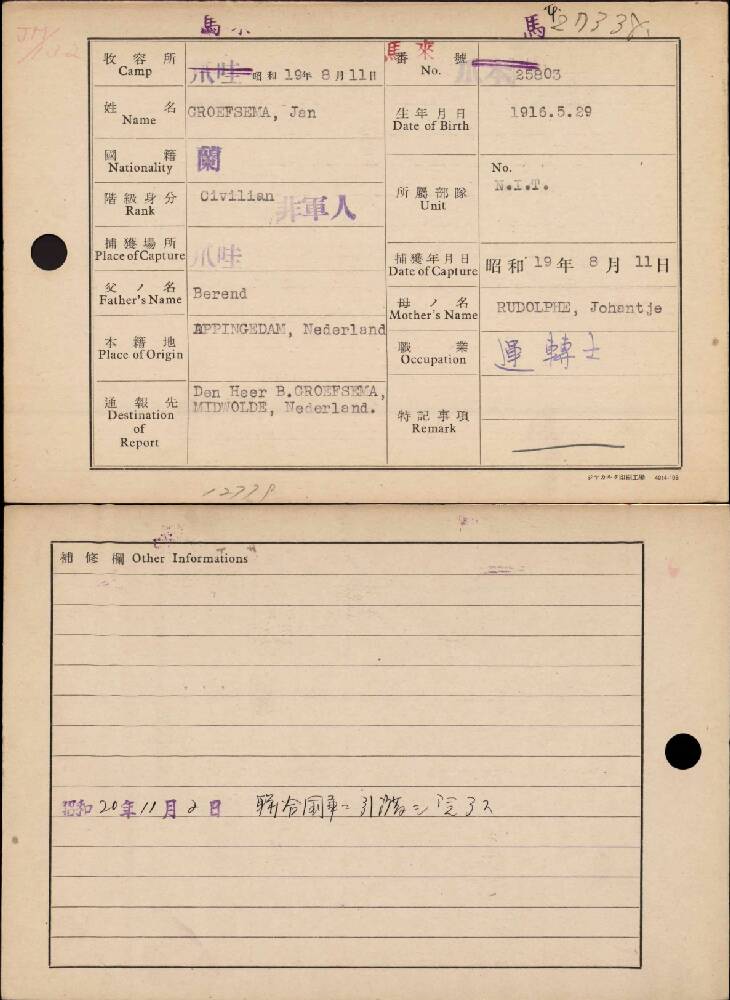 馬来
馬 27338
収容所 Camp 爪哇 昭和 19年 8月11日
馬來
番號 No. 25803
姓名 Name GROEFSEMA, Jan
生年月日 Date of Birth 1916.5.29
國籍 Nationality 蘭
階級身分 Rank Civilian 非軍人
所屬部隊 Unit No. N.I.T.
捕獲場所 Place of Capture 爪哇
捕獲年月日 Date of Capture 昭和 19年 8月 11日
父ノ名 Father's Name Berend
母ノ名 Mother's Name RUDOLPHE, Johantje
本籍地 Place of Origin APPINGEDAM, Nederland
職業 Occupation 運轉士
通報先 Destination of Report
Den Heer B.GROEFSEMA,
MIDWOLDE, Nederland.
特記事項 Remark
ジヤカルタ印刷工場
12779
補修欄 Other Informations
昭和20年11月2日 聯合國軍ニ引渡シ完了ス